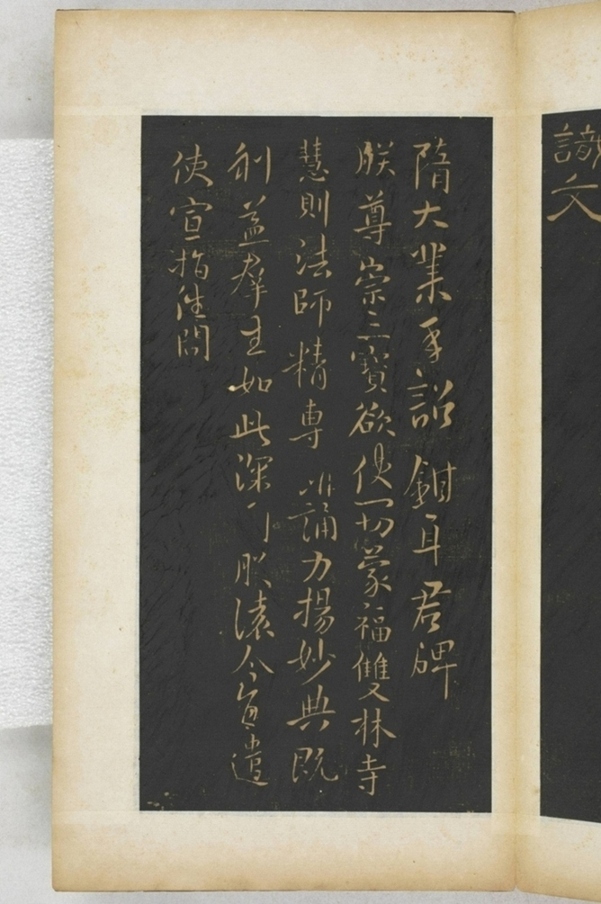 識文
隋大業手詔 鉗耳君碑
朕尊崇三寶欲使一切蒙福雙林寺
慧則法師精專 誦力揚妙典既
利益羣生如此深可朕懐今直遣
使宣指徃問